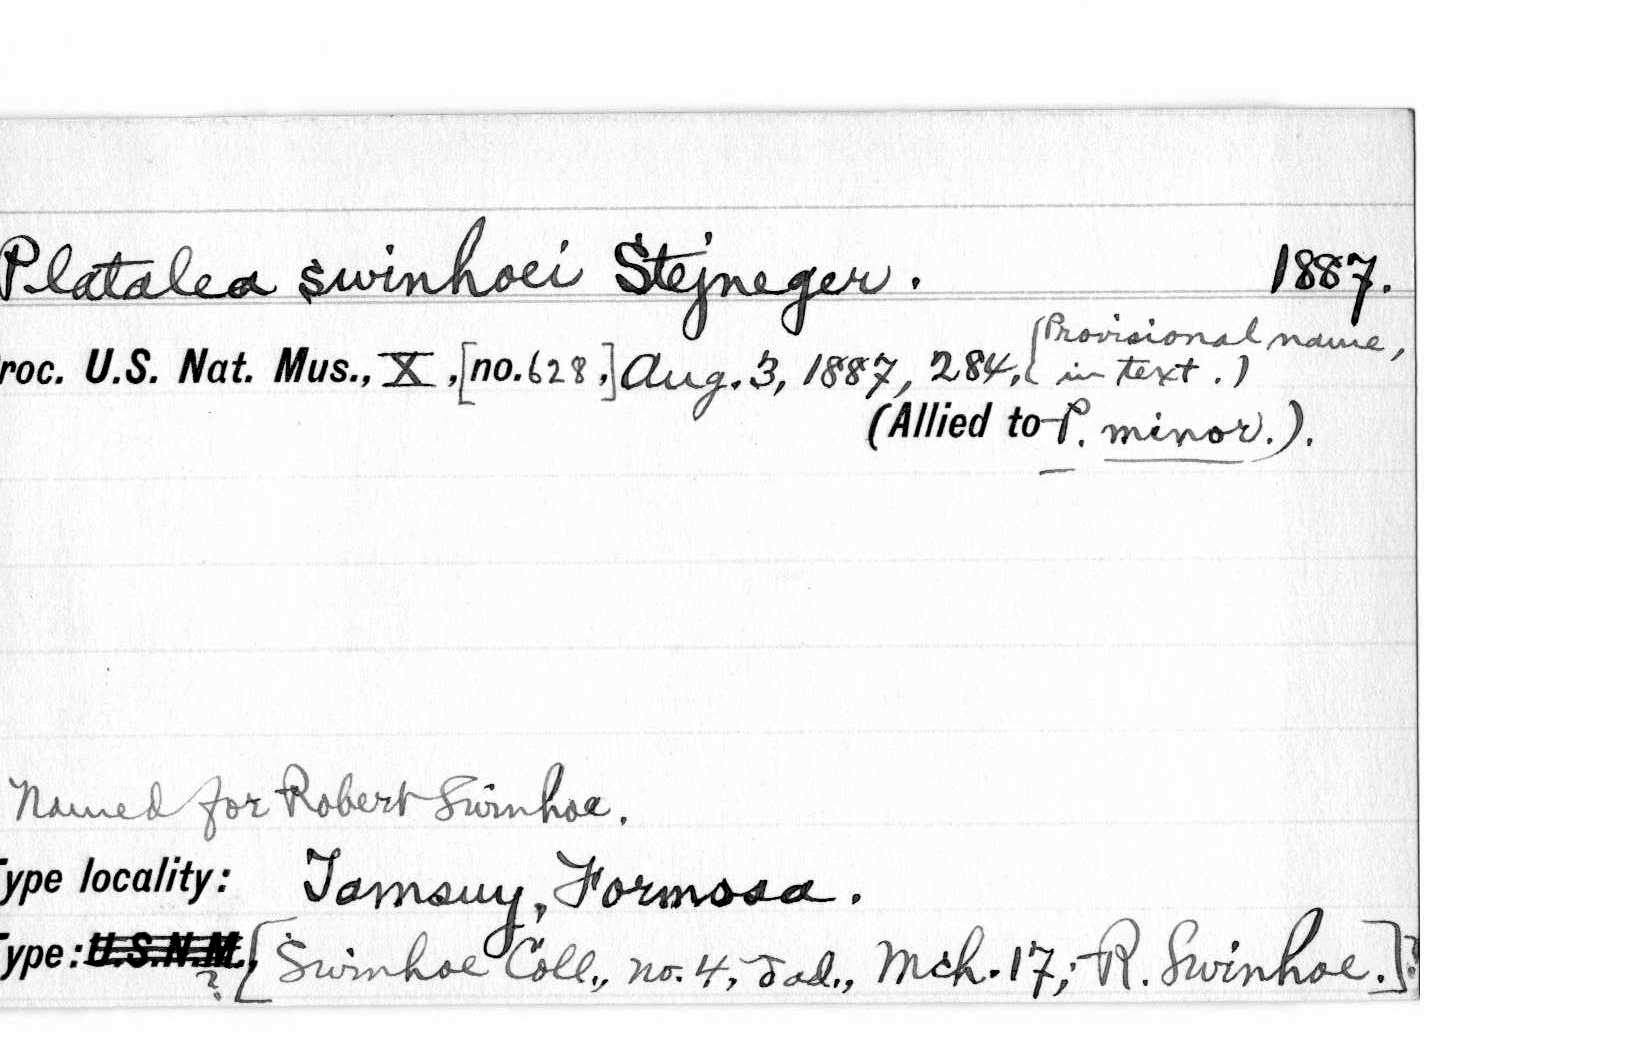 Platalea swinhoei Stejneger. 1887.
roc. U.S. Nat. Mus., X, [no. 628,] Aug. 3, 1887, 284. (Provisional name,
in text.)
(Allied to P. minor.).
Named for Robert Swinhoe.
Type locality: Tamsuy, Formosa.
Type: U.S.N.M. ? [Swinhoe Coll., no. 4, ♂ ad., Mch. 17; R. Swinhoe.]?